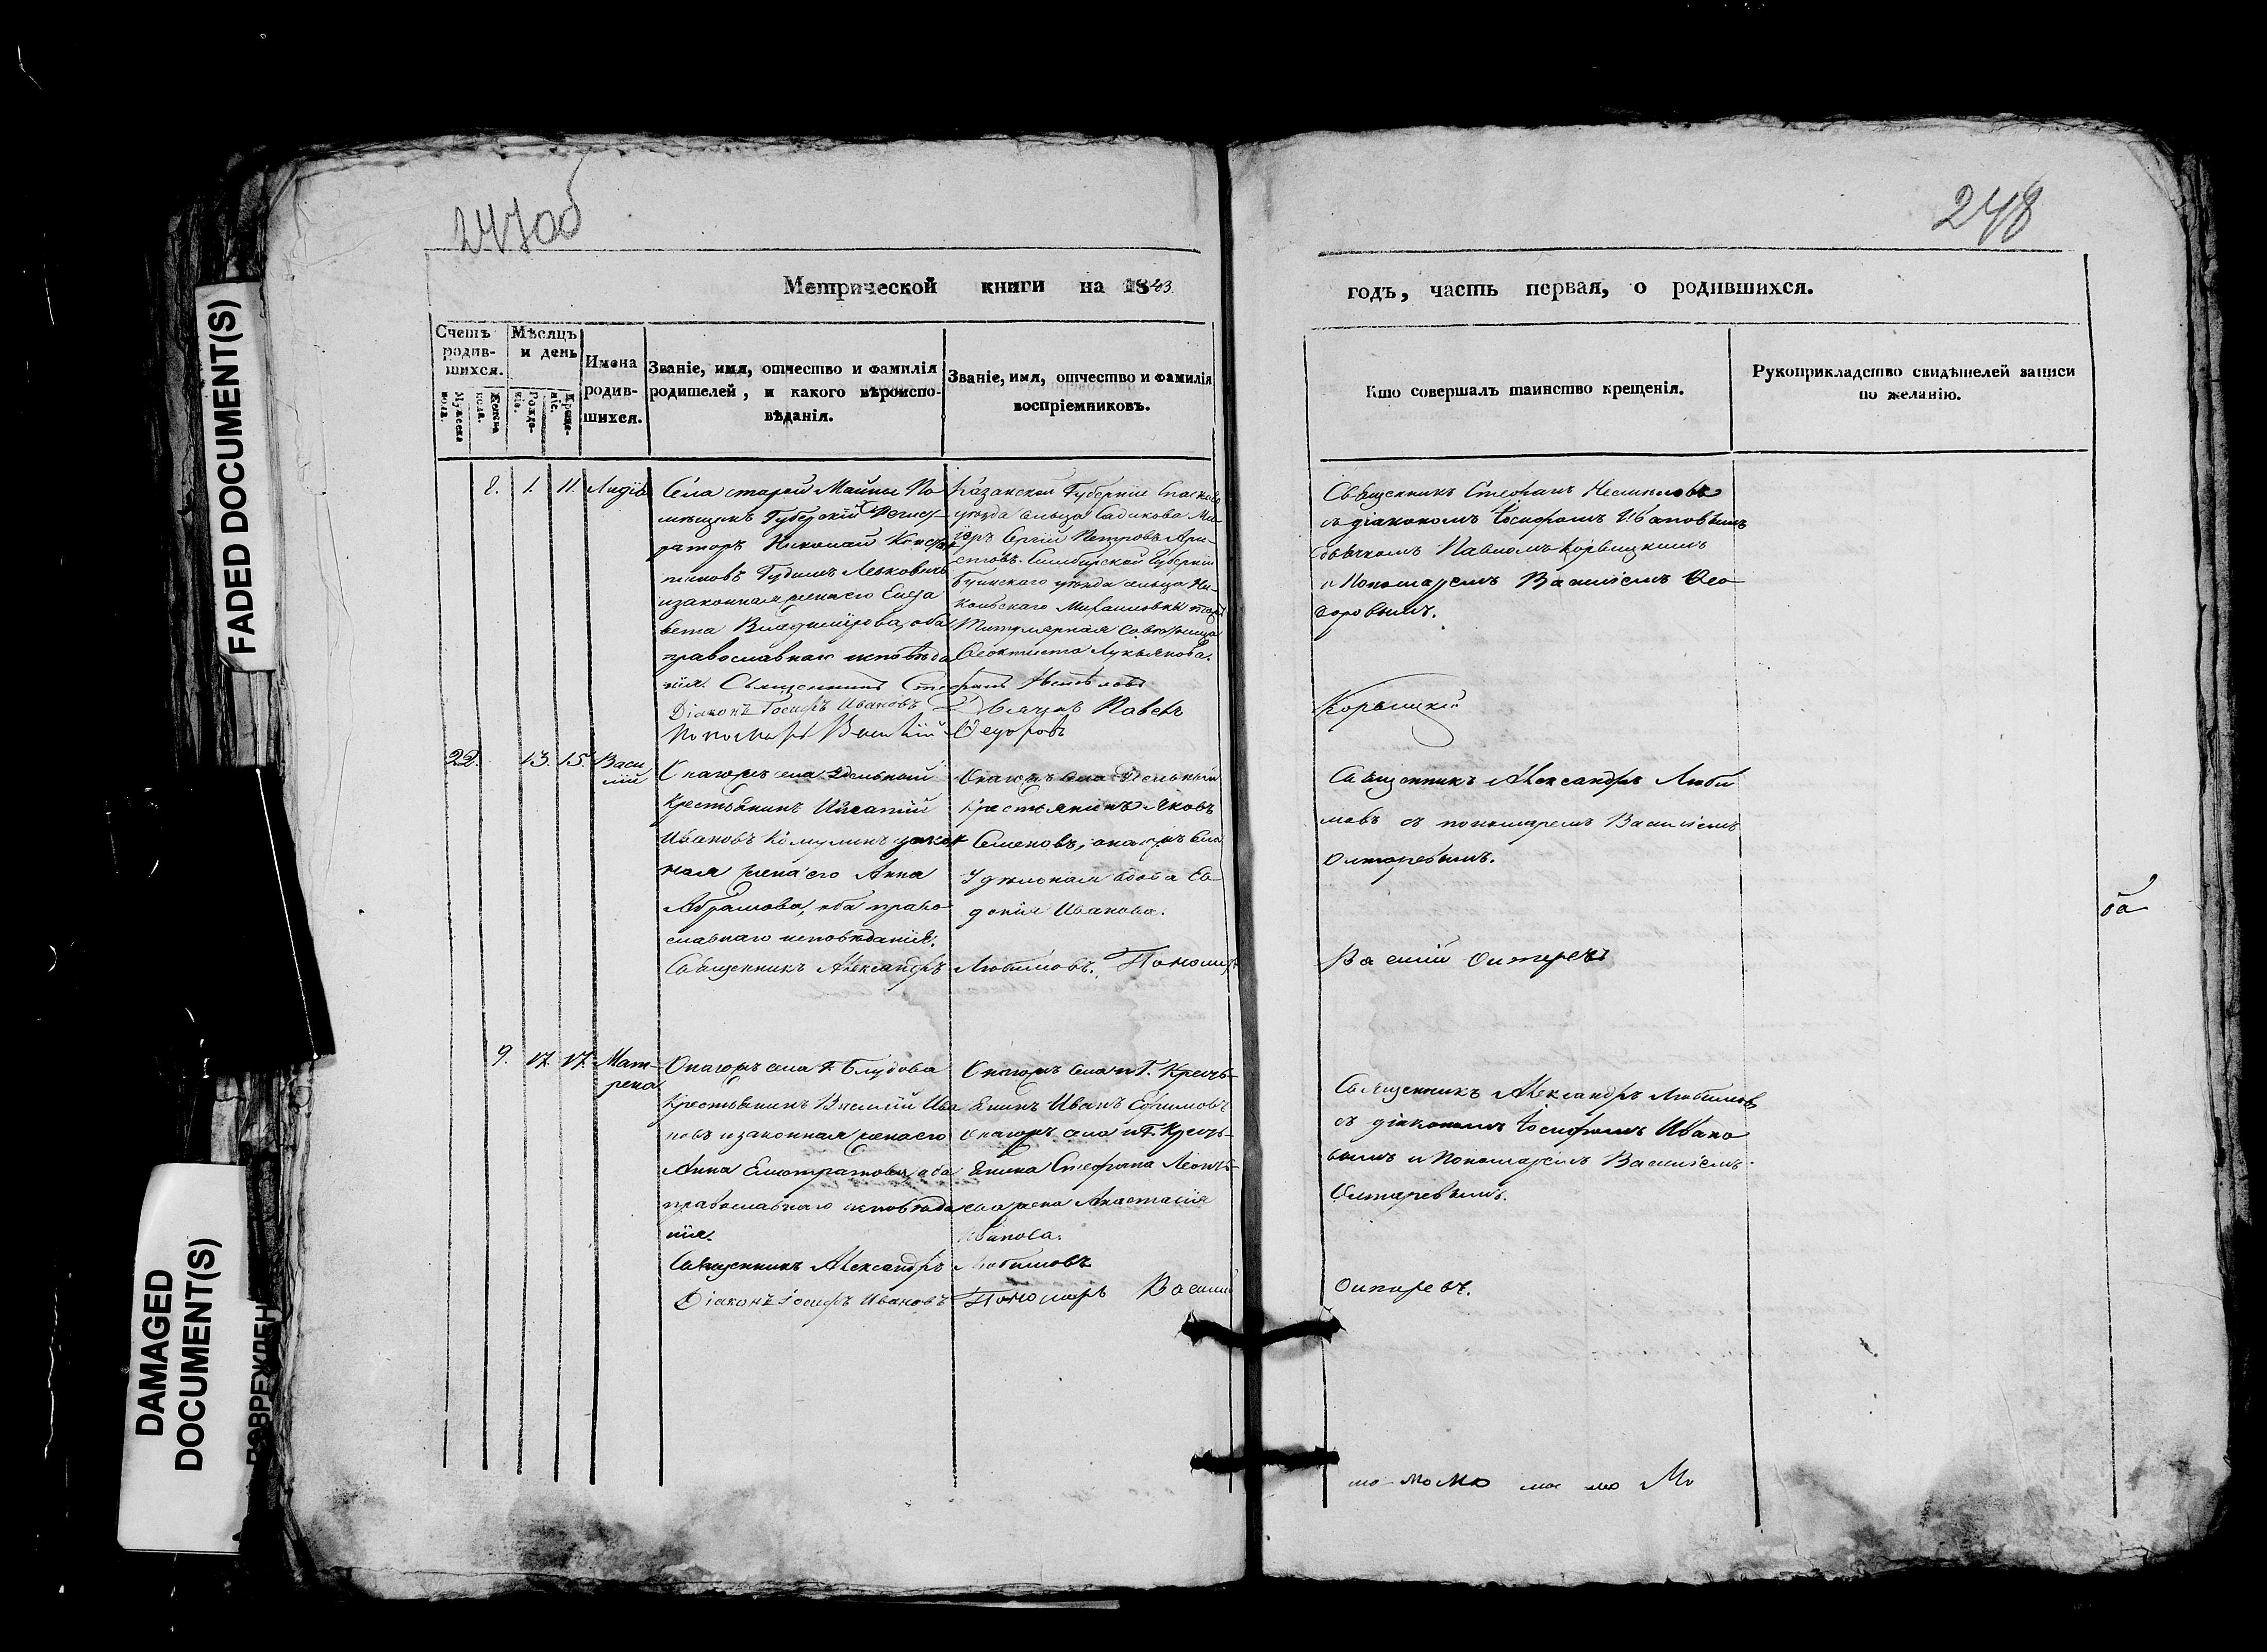 247об
248
Метрической книги на 1843.
годъ, часть первая, о родившихся.
Счетъ родившихся.
Мужеска пола.
Женска пола.
Мѣсяцъ и день
Рожденія.
Крещенія.
Имена родившихся.
Званіе, имя, отчество и фамилія родителей, и какого вѣроисповѣданія.
Званіе, имя, отчество и фамилія воспріемниковъ.
Кто совершалъ таинство крещенія.
Рукоприкладство свидѣтелей записи по желанію.
8. 1. 11. Лидія
Села старой Майны По-
мѣщикъ Губерскій Регист-
раторъ Николай Констан
тиновъ Гудимъ Левковичъ
и законная жена его Елиза
вета Владимірова, оба
православнаго исповѣда
нія. Священникъ
Діаконъ Іосифъ Ивановъ
Пономарь Василій
Казанской Губерніи Спаскаго
уѣзда сельца Садикова Ма-
іоръ Сергій Петровъ Ари-
стовъ. Симбирской Губерніи
Буинскаго уѣзда сельца Ни-
кольскаго Михаиловка тожъ
Титулярная Совѣтница
Феоктиста Лукьянова.
Стефанъ
Дьячекъ Павелъ
Федоровъ
Священникъ Стефанъ
съ діакономъ Іосифомъ Ивановымъ
дьячкомъ Павломъ Корьицкимъ
и Пономаремъ Василіемъ Фео-
доровымъ.
Корьицкій
22. 13. 15. Васи
лій
Онагожъ села Удѣльный
Крестьянинъ Игнатій
Ивановъ закон
ная жена его Анна
Абрамова, оба право
славнаго исповѣданія.
Священникъ Александръ
Онагожъ села Удѣльный
Крестьянинъ Яковъ
Семеновъ, онагожъ села
Удѣльная вдова Ев
докія Иванова.
Любимовъ. Пономарь
Священникъ Александръ Люби
мовъ съ пономаремъ Василіемъ
Олтаревымъ.
Василій Олтаревъ
ба
9. 17. 17. Мат-
рена
Онагожъ села Г. Блудова
Крестьянинъ Василій Ива
новъ и законная жена его
Анна Евстратова, оба
православнаго исповѣда
нія.
Священникъ Александръ
Діаконъ Іосифъ Ивановъ
Онагожъ села и Г. Кресть-
янинъ Иванъ Ефимовъ
онагожъ села и Г. Кресть-
янина Стефана Леонть-
ева жена Анастасія
Иванова.
Любимовъ
Пономарь Василій
Священникъ Александръ Любимовъ
съ діакономъ Іосифомъ Ивано
вымъ и Пономаремъ Василіемъ
Олтаревымъ.
Олтаревъ.
мо мо мо мо мо Мо
FADED DOCUMENT(S)
DAMAGED DOCUMENT(S)